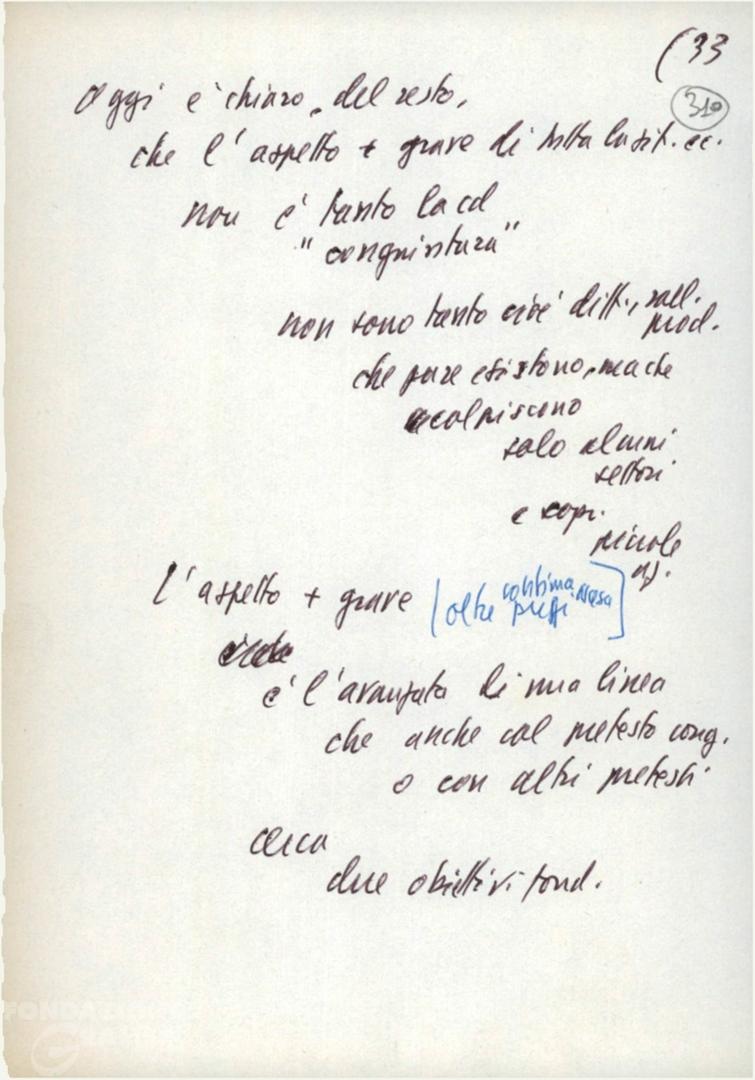 (33
310
Oggi è chiaro, del resto,
che l'aspetto + grave di tutta la sit. ec.
non è tanto la cd
"congiuntura"
non sono tanto cioè diff., rall.
prod.
che pure esistono, ma che
colpiscono
solo alcuni
settori
e sopr.
piccole
az.
l'aspetto + grave (oltre continua ascesa
prezzi]
è l'avanzata di una linea
che anche col pretesto cong.
o con altri pretesti
cerca
due obiettivi fond.
FONDAZIONE